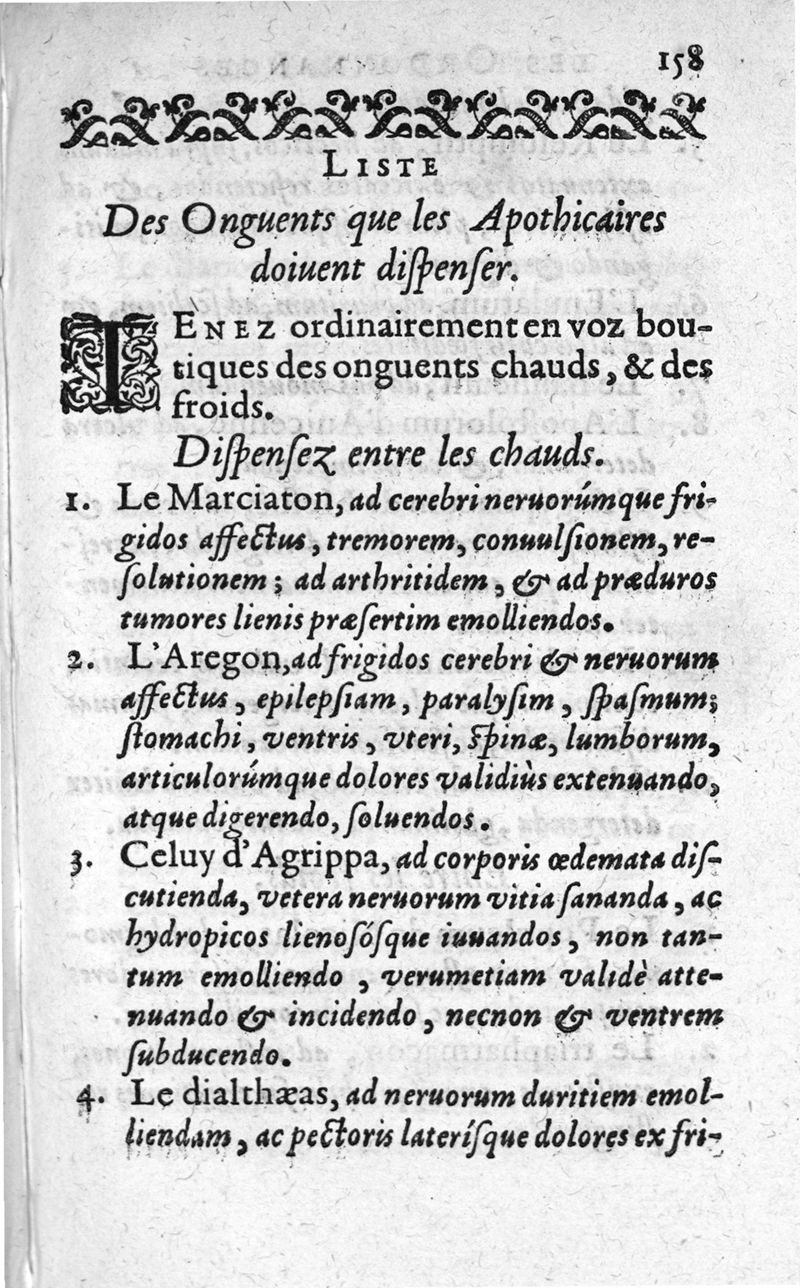 158
LISTE
Des Onguents que les Apothicaires
doiuent diſpenſer.
TENEZ ordinairement en voz bou-
tiques des onguents chauds, & des
froids.
Diſpenſez entre les chauds.
1. Le Marciaton, ad cerebri neruorúmque fri-
gidos affectus, tremorem, conuulſionem, re-
ſolutionem; ad arthritidem, & ad præduros
tumores lienis præſertim emolliendos.
2. L'Aregon, ad frigidos cerebri & neruorum
affectus, epilepſiam, paralyſim, ſpaſmum;
ſtomachi, ventris, vteri, Spinæ, lumborum,
articulorúmque dolores validiùs extenuando,
atque digerendo, ſoluendos.
3. Celuy d'Agrippa, ad corporis œdemata diſ-
cutienda, vetera neruorum vitia ſananda, ac
hydropicos lienoſóſque iuuandos, non tan-
tum emolliendo, verumetiam validè atte-
nuando & incidendo, necnon & ventrem
ſubducendo.
4. Le dialthæas, ad neruorum duritiem emol-
liendam, ac pectoris lateríſque dolores ex fri-